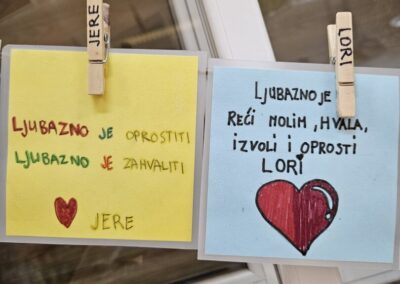 JERE
LJUBAZNO JE OPROSTITI
LJUBAZNO JE ZAHVALITI
JERE
LORI
LJUBAZNO JE
REĆI MOLIM, HVALA,
IZVOLI I OPROSTI
LORI